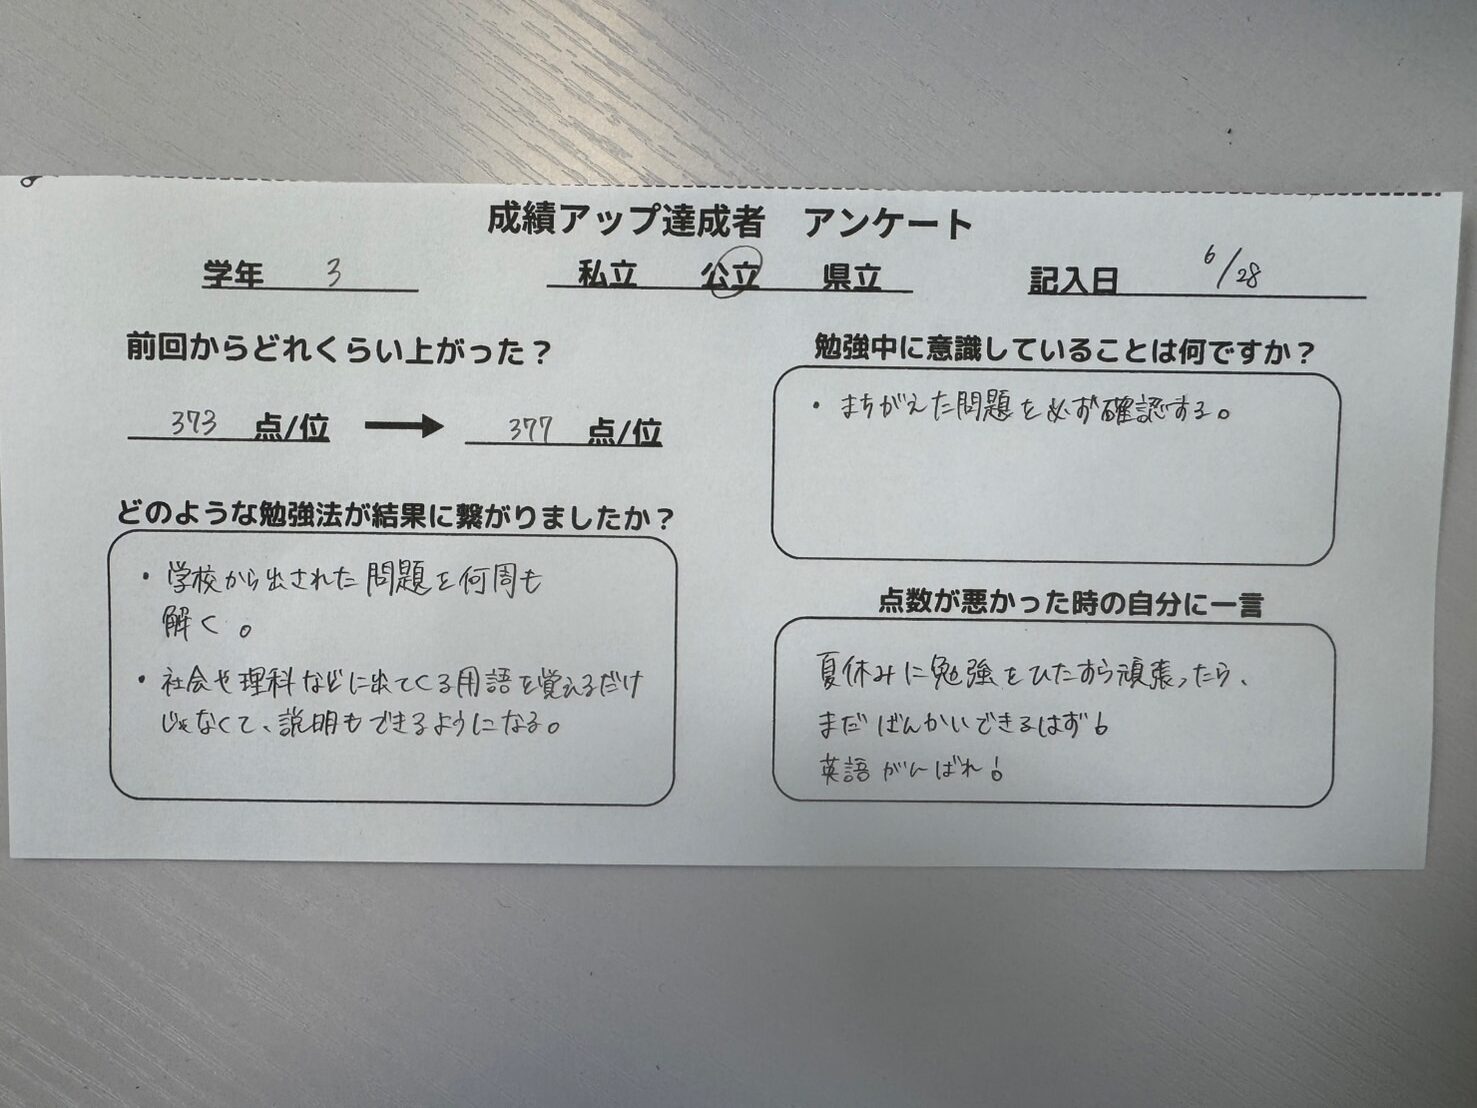 成績アップ達成者 アンケート
学年 3 私立 公立 県立 記入日 6/28
前回からどれくらい上がった？
373 点/位 → 377 点/位
どのような勉強法が結果に繋がりましたか？
・学校から出された問題を何周も
解く。
・社会や理科などに出てくる用語を覚えるだけ
じゃなくて、説明もできるようになる。
勉強中に意識していることは何ですか？
・まちがえた問題を必ず確認する。
点数が悪かった時の自分に一言
夏休みに勉強をひたすら頑張ったら、
まだばんかいできるはず!
英語がんばれ!